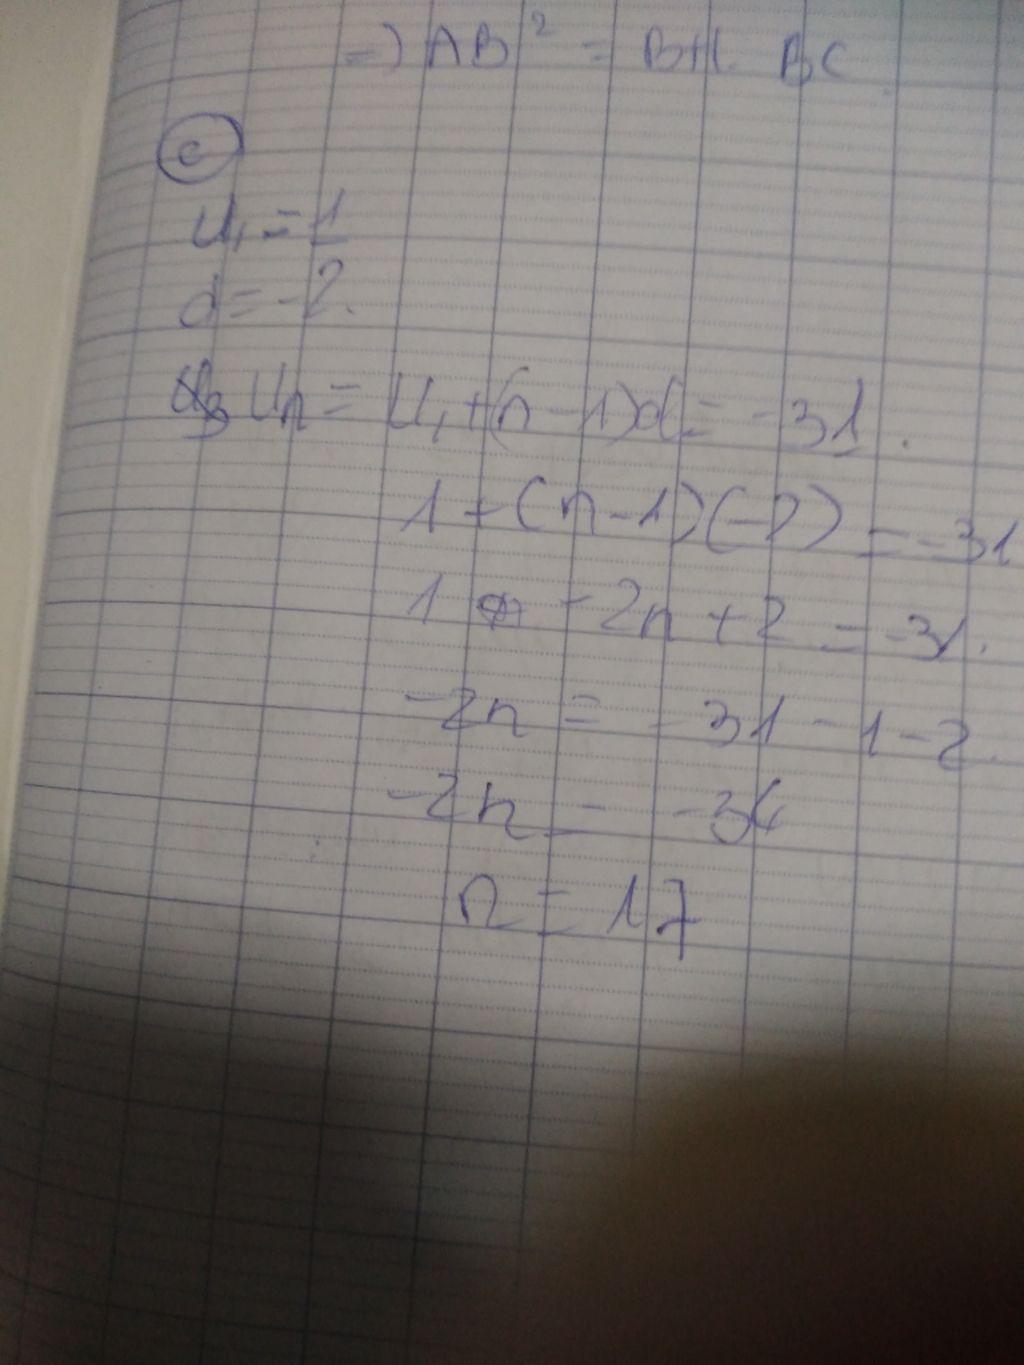 =) AB² = BH. BC
c
U₁ = 1
d = -2.
Un = U₁ + (n - 1)d = -31.
1 + (n - 1)(-2) = -31
1 - 2n + 2 = -31.
-2n = -31 - 1 - 2.
-2n = -34
n = 17